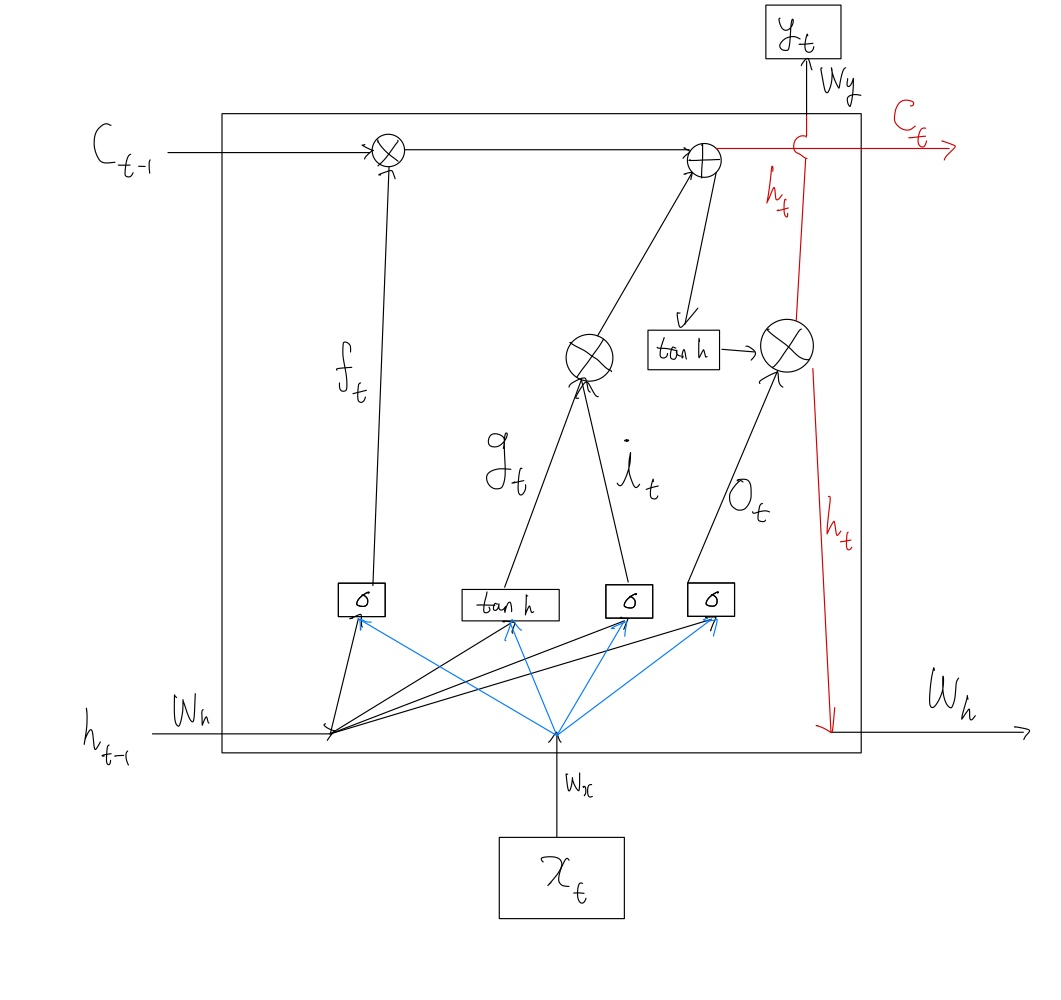 y_t
W_y
C_t
C_{t-1}
h_t
tanh
f_t
g_t
i_t
o_t
h_t
σ
tanh
σ
σ
W_h
W_h
h_{t-1}
W_x
x_t